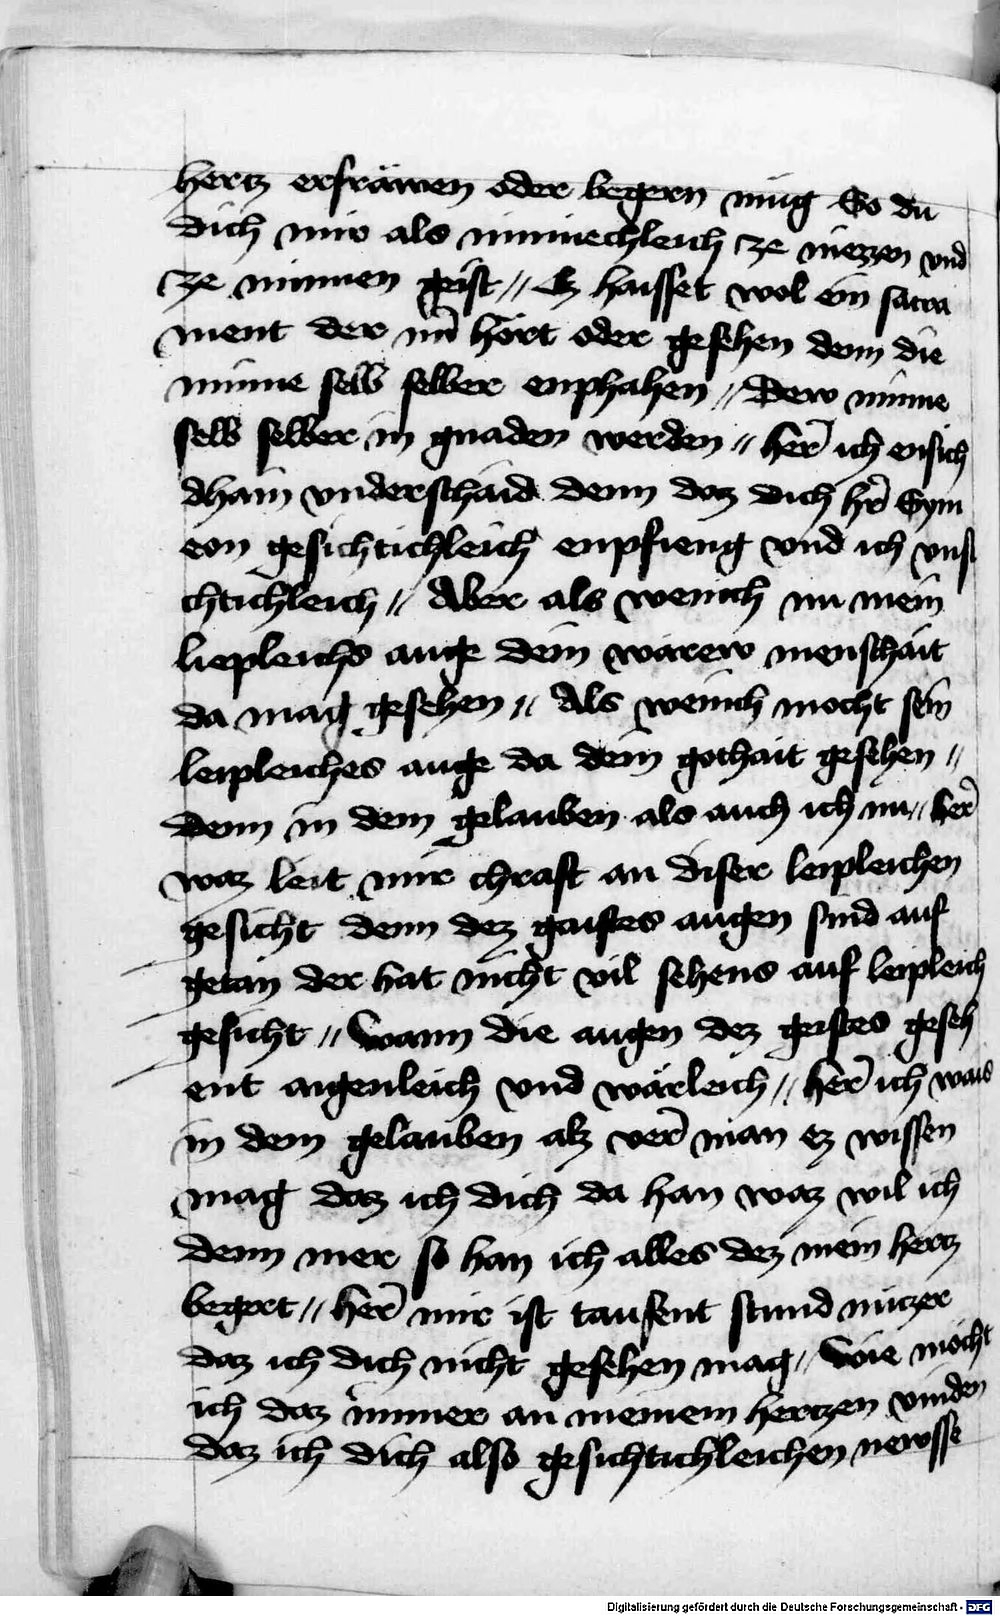 hertz erfräwen oder begern mug So du
dich mir als minnechleich cze niezzen vnd
cze minnen geist // Ez haisset wol ein sacra
ment der nu hört oder gesehen denn die
minne selb selber enphahen // Dew minne
selb selber in gnaden werden // her̄ ich ensich
dhain vnderschaid denn daz dich hr̄ Sym
eon gesichtichleich enpfieng vnd ich vnsi
chtichleich // Aber als wenich nu mein
liepleichs auge dein warew menschait
da mag gesehen // Als wenich mocht sein
leipleiches auge da dein gothait gesehen //
denn in dem gelauben als auch ich nu // her̄
waz leit mir chraft an diser leipleichen
gesicht denn dez gaistes augen sind auf
getan der hat nicht vil sehens auf leipleich
gesicht // Wann die augen dez geistes geseh
ent aigenleich vnd wärleich // her̄ ich wais
in dem gelauben alz ver̄ man ez wissen
mag daz ich dich da han waz wil ich
denn mer so han ich alles dez mein hertz
begert // her̄ mir ist tausent stund nüczer
daz ich dich nicht gesehen mag // Wie möcht
ich daz immer an meinem hertzen vinden
daz ich dich also gesichtichleichen newsse
Digitalisierung gefördert durch die Deutsche Forschungsgemeinschaft - DFG